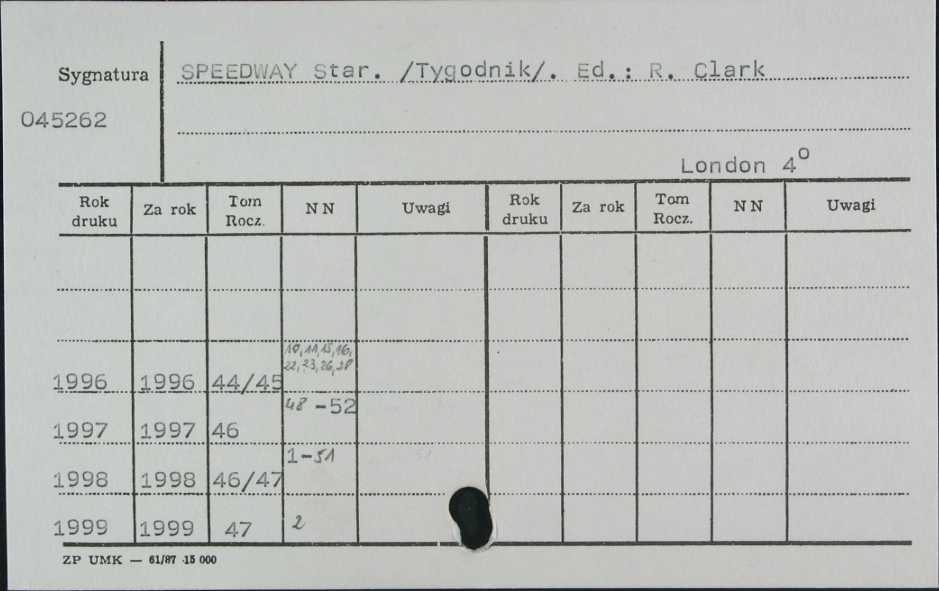 Sygnatura SPEEDWAY Star. /Tygodnik/. Ed.: R. Clark
045262
London 4⁰
Rok druku Za rok Tom Rocz. NN Uwagi Rok druku Za rok Tom Rocz. NN Uwagi
10, 11, 15, 16,
22, 23, 26, 28
1996 1996 44/45
48 - 52
1997 1997 46
1-51
1998 1998 46/47
1999 1999 47 2
ZP UMK — 61/87 15 000